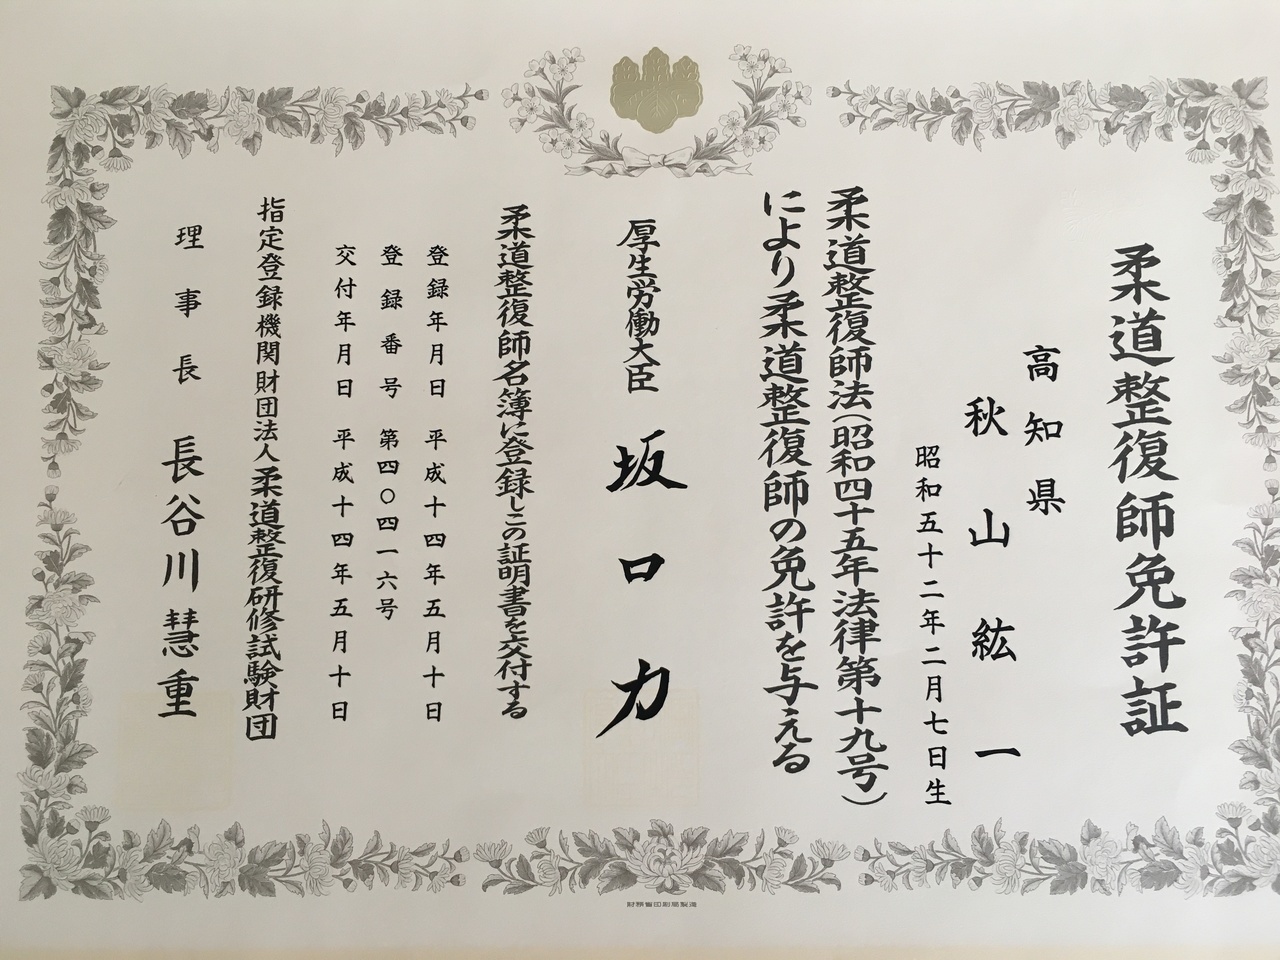 柔道整復師免許証
高知県
秋山紘一
昭和五十二年二月七日生
柔道整復師法(昭和四十五年法律第十九号)
により柔道整復師の免許を与える
厚生労働大臣 坂口力
柔道整復師名簿に登録しこの証明書を交付する
登録年月日 平成十四年五月十日
登録番号 第四〇四一六号
交付年月日 平成十四年五月十日
指定登録機関財団法人柔道整復研修試験財団
理事長 長谷川慧重
財務省印刷局製造